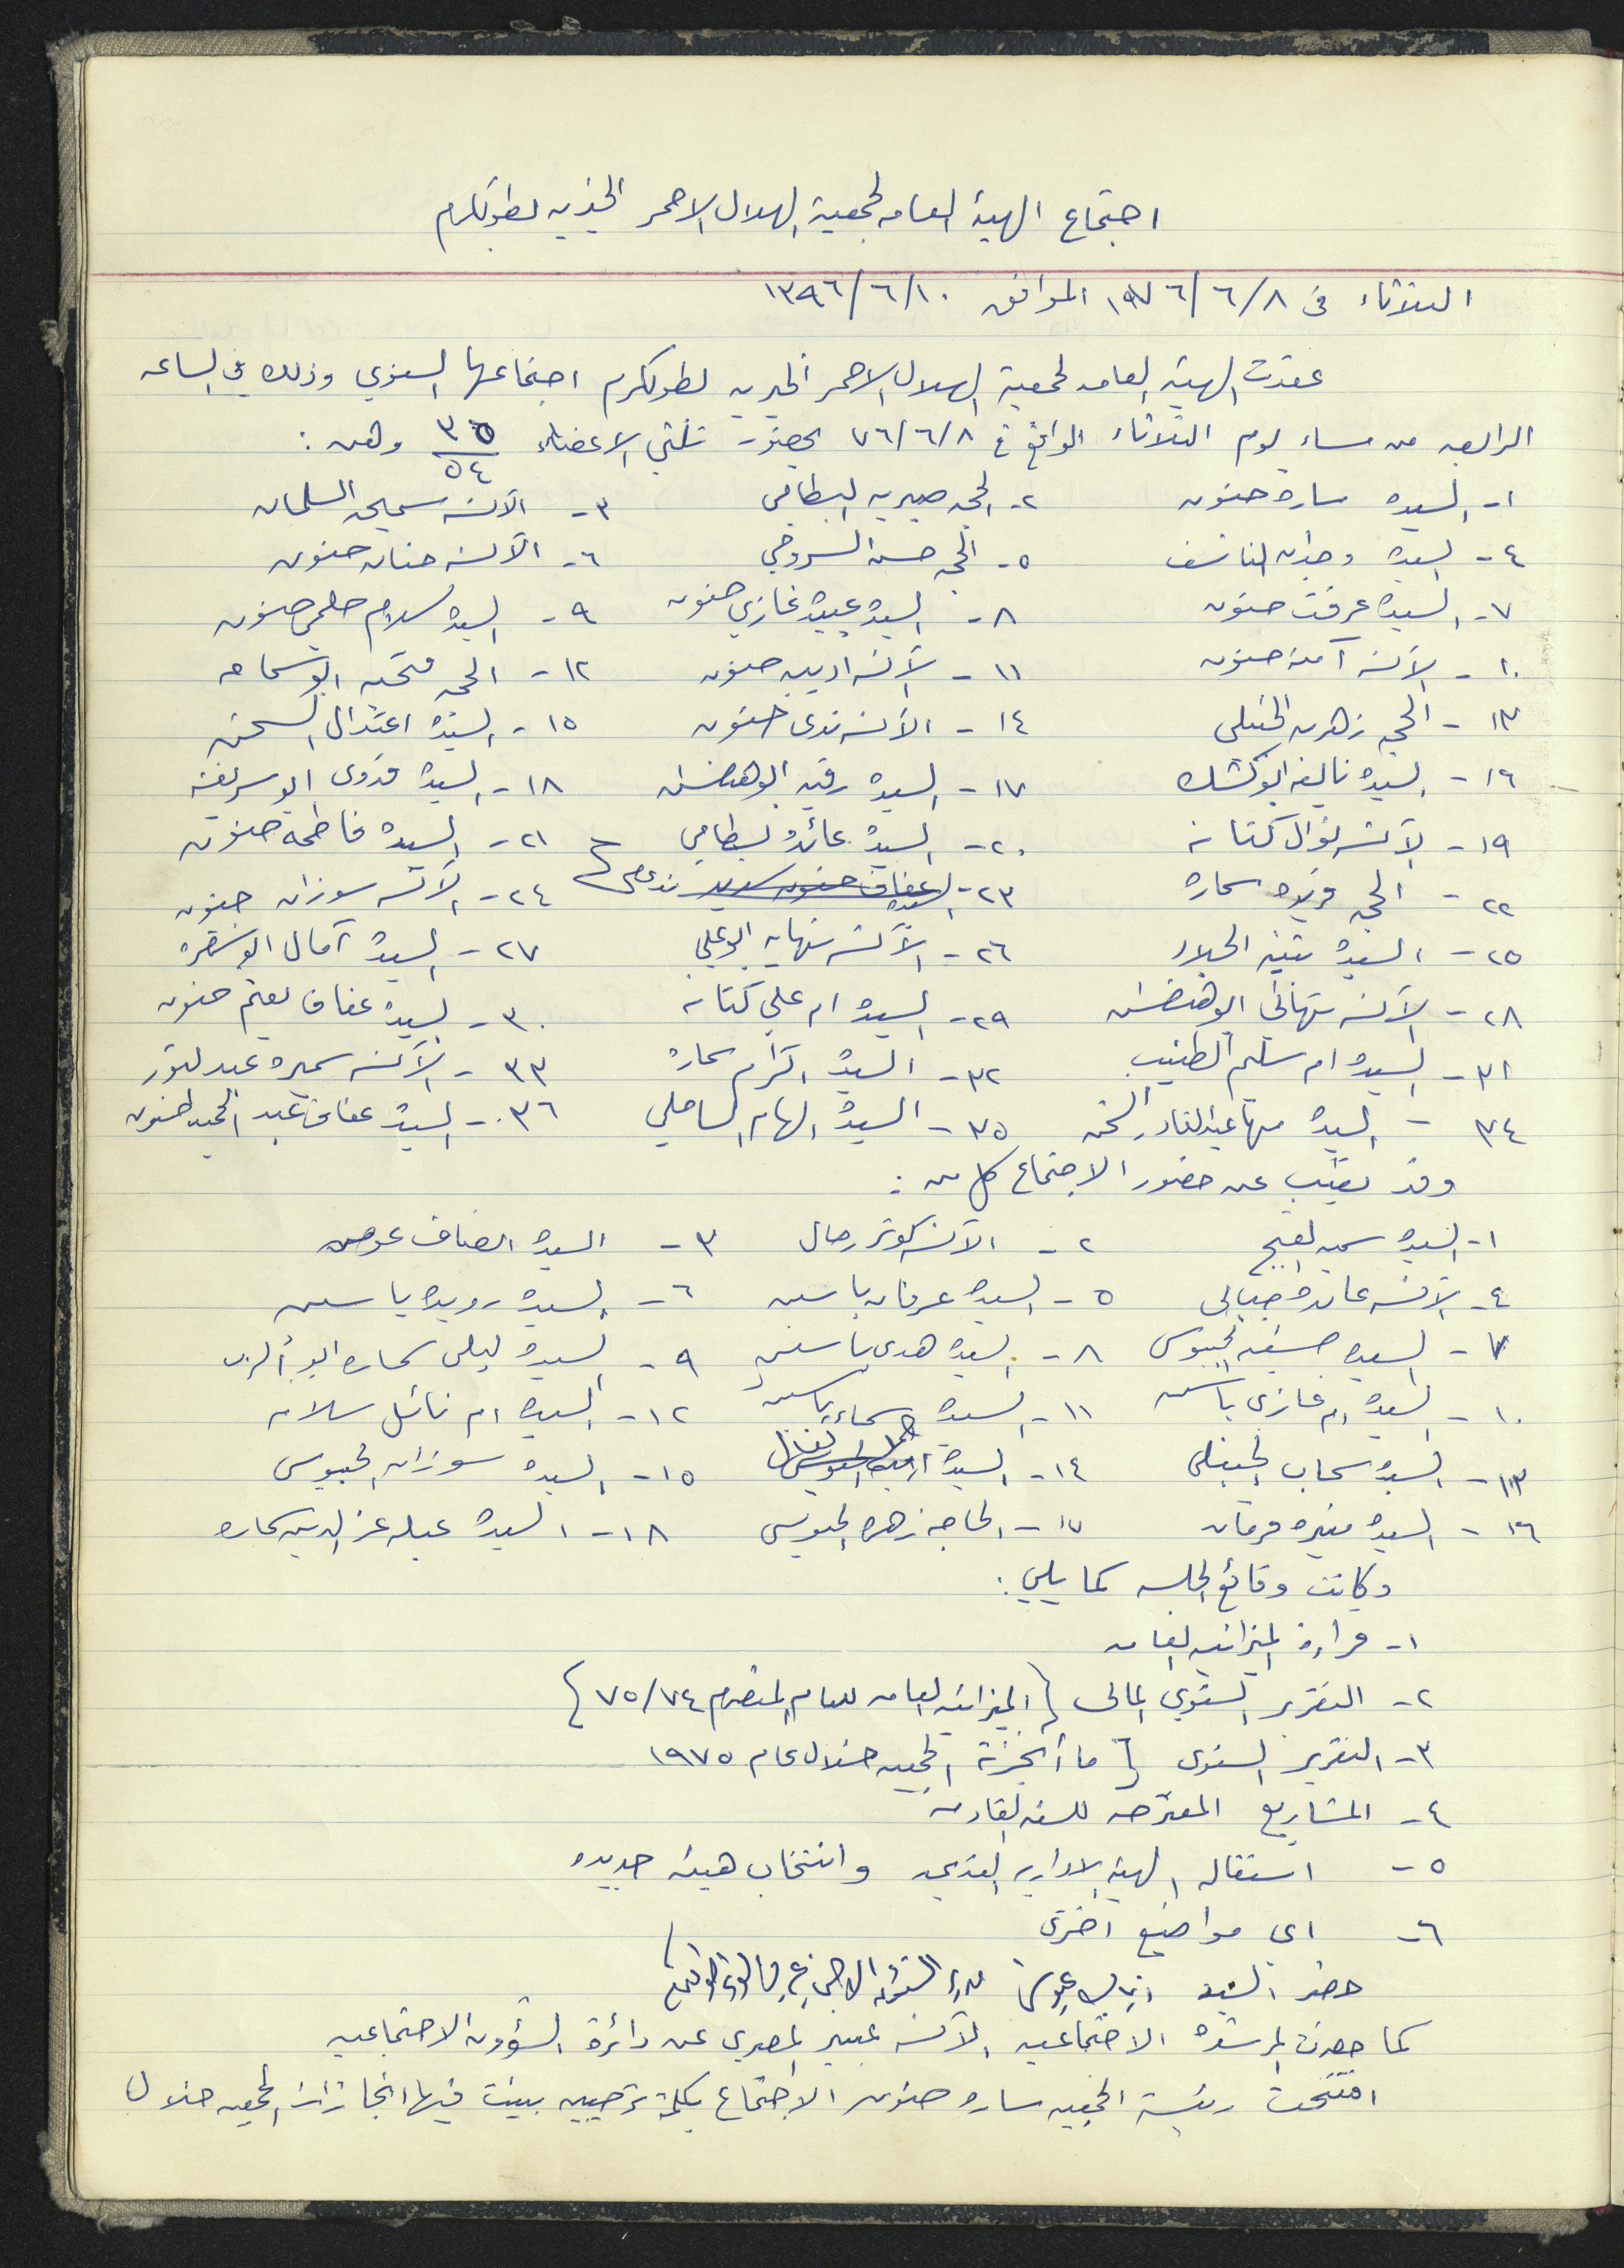 اجتماع الهيئة العامه لجمعية الهلال الاحمر الخيريه لطولكرم
الثلاثاء في ١٩٧٦/٦/٨ الموافق ١٣٩٦/٦/١٠
عقدت الهيئة العامه لجمعية الهلال الاحمر الخيريه لطولكرم اجتماعها السنوي وذلك في الساعه
الرابعه من مساء يوم الثلاثاء الواقع في ٧٦/٦/٨ بحضور ثلثي الاعضاء ٣٥/٥٤ وهن :
١- السيده ساره حنون ٢- الحجه صبريه البسطامي ٣- الآنسه سميحه السلمان
٤- السيدة وجدان الناشف ٥- الحجه حسنه السروجي ٦- الآنسه حنان حنون
٧- السيده عرفت حنون ٨- السيده عبيده غازي حنون ٩- السيدة سلام حلمي حنون
١٠- الآنسه آمنه حنون ١١- الآنسه اديبه حنون ١٢- الحجه فتحيه ابو شمامه
١٣- الحجه زهديه الحنبلي ١٤- الآنسه ندى حنون ١٥- السيدة اعتدال السخن
١٦- السيدة نايفه ابو كشك ١٧- السيده رقيه ابو هنطش ١٨- السيدة فدوى ابو شريفة
١٩- الآنسه نوال كتانه ٢٠- السيدة عائدة بسطامي ٢١- السيدة فاطمة حنون
٢٢- الحجه فريده سماره ٢٣- السيدة عفاف حنون ٢٤- الآنسه سوزان حنون
٢٥- السيدة بثينه الجلاد ٢٦- الآنسه نهايه ابو علي ٢٧- السيدة آمال ابو شقره
٢٨- الآنسه تهاني ابو هنطش ٢٩- السيدة ام علي كتانه ٣٠- السيدة عفاف نعيم حنون
٣١- السيدة ام سليم الطنيب ٣٢- السيدة اكرام سماره ٣٣- الآنسه سميره عبد النور
٣٤- السيدة مها عبد القادر السخن ٣٥- السيدة الهام الساحلي ٣٦- السيدة عفاف عبد الحميد حنون
وقد تغيب عن حضور الاجتماع كل من :
١- السيدة سميه لفتح ٢- الآنسه كوثر رحال ٣- السيدة انصاف عوض
٤- الآنسه عائدة جبالي ٥- السيدة عرفان ياسين ٦- السيدة رويده ياسين
٧- السيده حسنيه الجيوسي ٨- السيدة هدى ياسين ٩- السيدة ليلى سماره ابو الرب
١٠- السيدة ام غازي ياسين ١١- السيدة سماء ياسين ١٢- السيدة ام نائل سلامه
١٣- السيدة سحاب الحنبلي ١٤- السيدة ١٥- السيدة سوزان الجيوسي
١٦- السيدة منيره فرحان ١٧- الحاجه زهره الجيوسي ١٨- السيدة عبله عز الدين سماره
وكانت وقائع الجلسه كما يلي :
١- قراءة الميزانيه العامه
٢- التقرير السنوي المالي } الميزانيه العامه للعام المنصرم ٧٥/٧٤ {
٣- التقرير السنوى } ما أنجزته الجمعيه خلال عام ١٩٧٥
٤- المشاريع المقترحه للسنه القادمه
٥- استقاله الهيئه الاداريه القديمه وانتخاب هيئه جديده
٦- اى مواضيع اخرى
حضر السيد مدير الشؤون الاجتماعيه
كما حضرت المرشدة الاجتماعيه الآنسه عبير المصري عن دائرة الشؤون الاجتماعيه
افتتحت رئيسة الجمعيه ساره حنون الاجتماع بكلمة ترحيبيه بينت فيها انجازات الجمعيه خلال